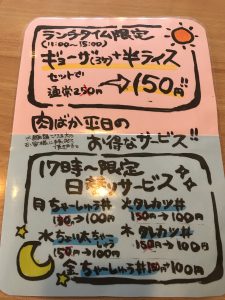 ランチタイム限定
(11:00〜15:00)
ギョーザ(3ヶ)+半ライス
セットで!
通常250円→150円!!
肉ばか平日の
お得なサービス!!
17時〜限定
日替りサービス
月 ちゃーしゅう丼
150円→100円
火 タレカツ丼
150円→100円
水 ちょい太ちゃーしゅう
150円→100円
木 タレカツ丼
150円→100円
金 ちゃーしゅう丼 150円→100円